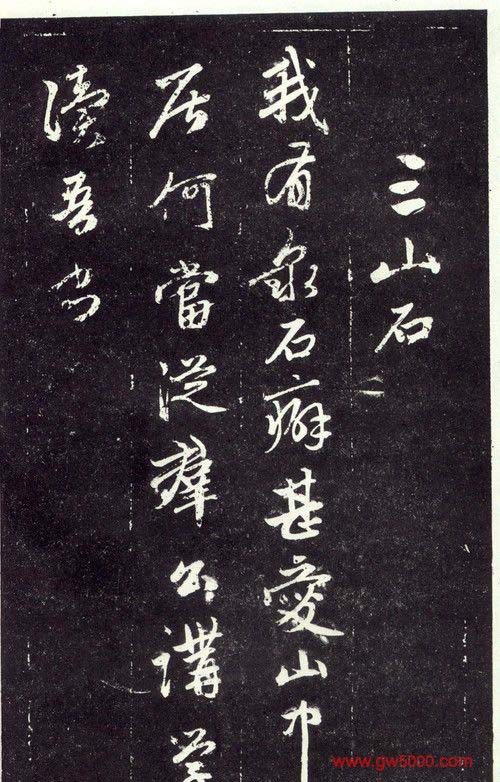 三山石
我有泉石癖甚愛山中
居何當從羣公講學
讀吾書
www.gw5000.com